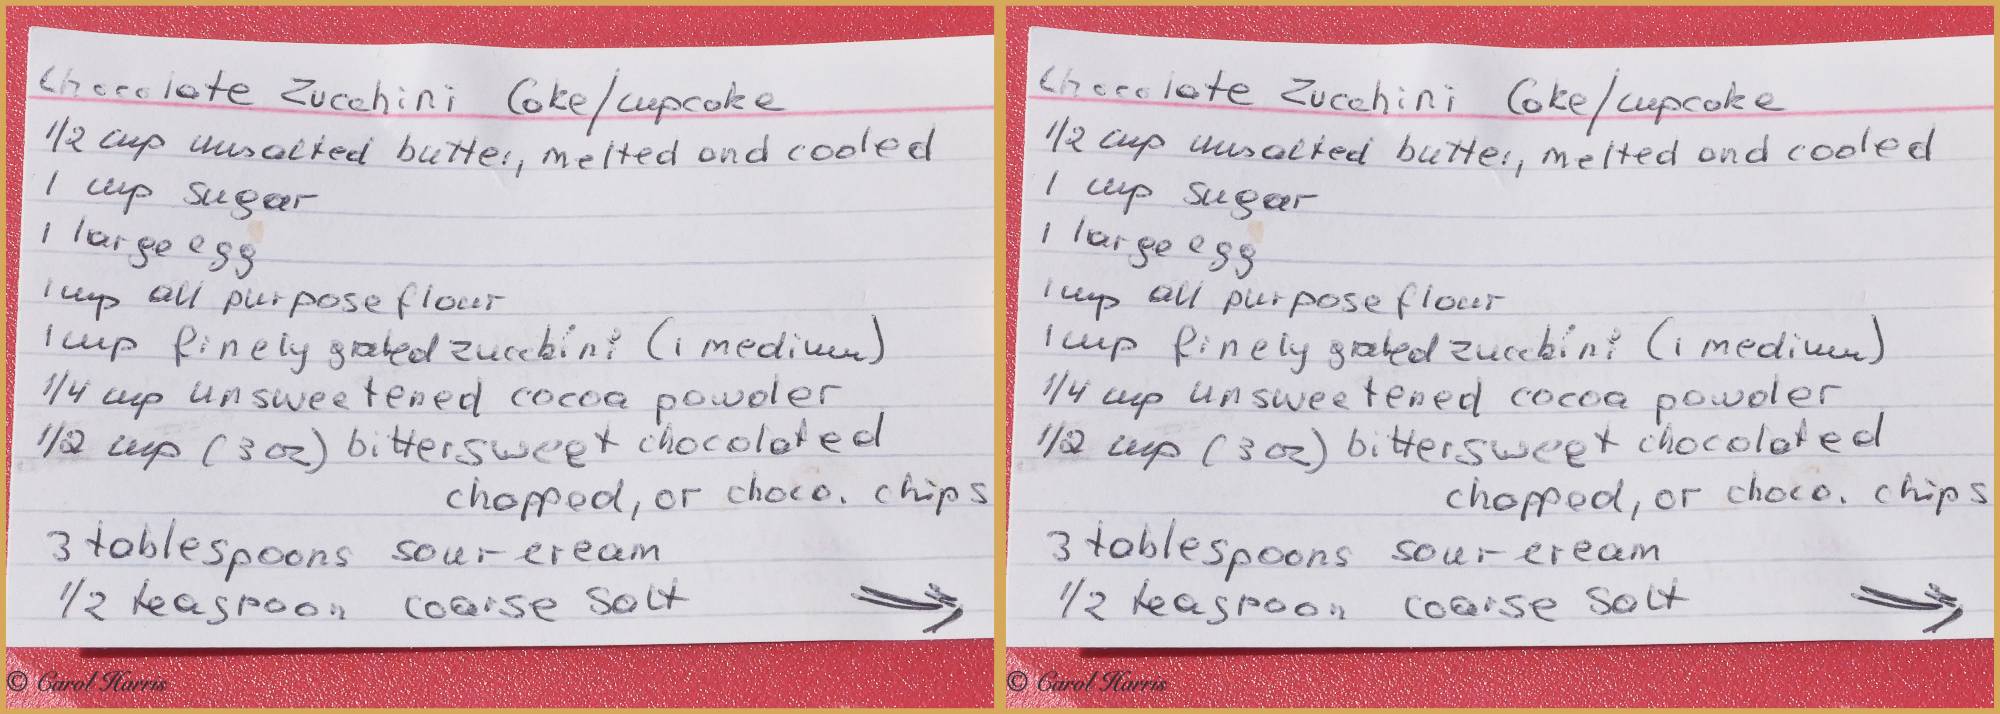 Chocolate Zucchini Cake/cupcake
1/2 cup unsalted butter, melted and cooled
1 cup sugar
1 large egg
1 cup all purpose flour
1 cup finely grated zucchini (1 medium)
1/4 cup unsweetened cocoa powder
1/2 cup (3 oz) bittersweet chocolated
chopped, or choco. chips
3 tablespoons sour cream
1/2 teaspoon coarse salt
© Carol Harris
Chocolate Zucchini Cake/cupcake
1/2 cup unsalted butter, melted and cooled
1 cup sugar
1 large egg
1 cup all purpose flour
1 cup finely grated zucchini (1 medium)
1/4 cup unsweetened cocoa powder
1/2 cup (3 oz) bittersweet chocolated
chopped, or choco. chips
3 tablespoons sour cream
1/2 teaspoon coarse salt
© Carol Harris